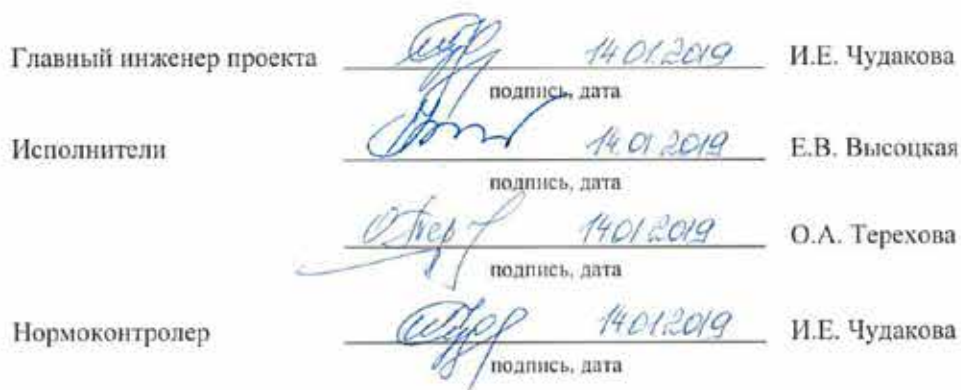 Главный инженер проекта 14.01.2019 И.Е. Чудакова
подпись, дата
Исполнители 14.01.2019 Е.В. Высоцкая
подпись, дата
14.01.2019 О.А. Терехова
подпись, дата
Нормоконтролер 14.01.2019 И.Е. Чудакова
подпись, дата